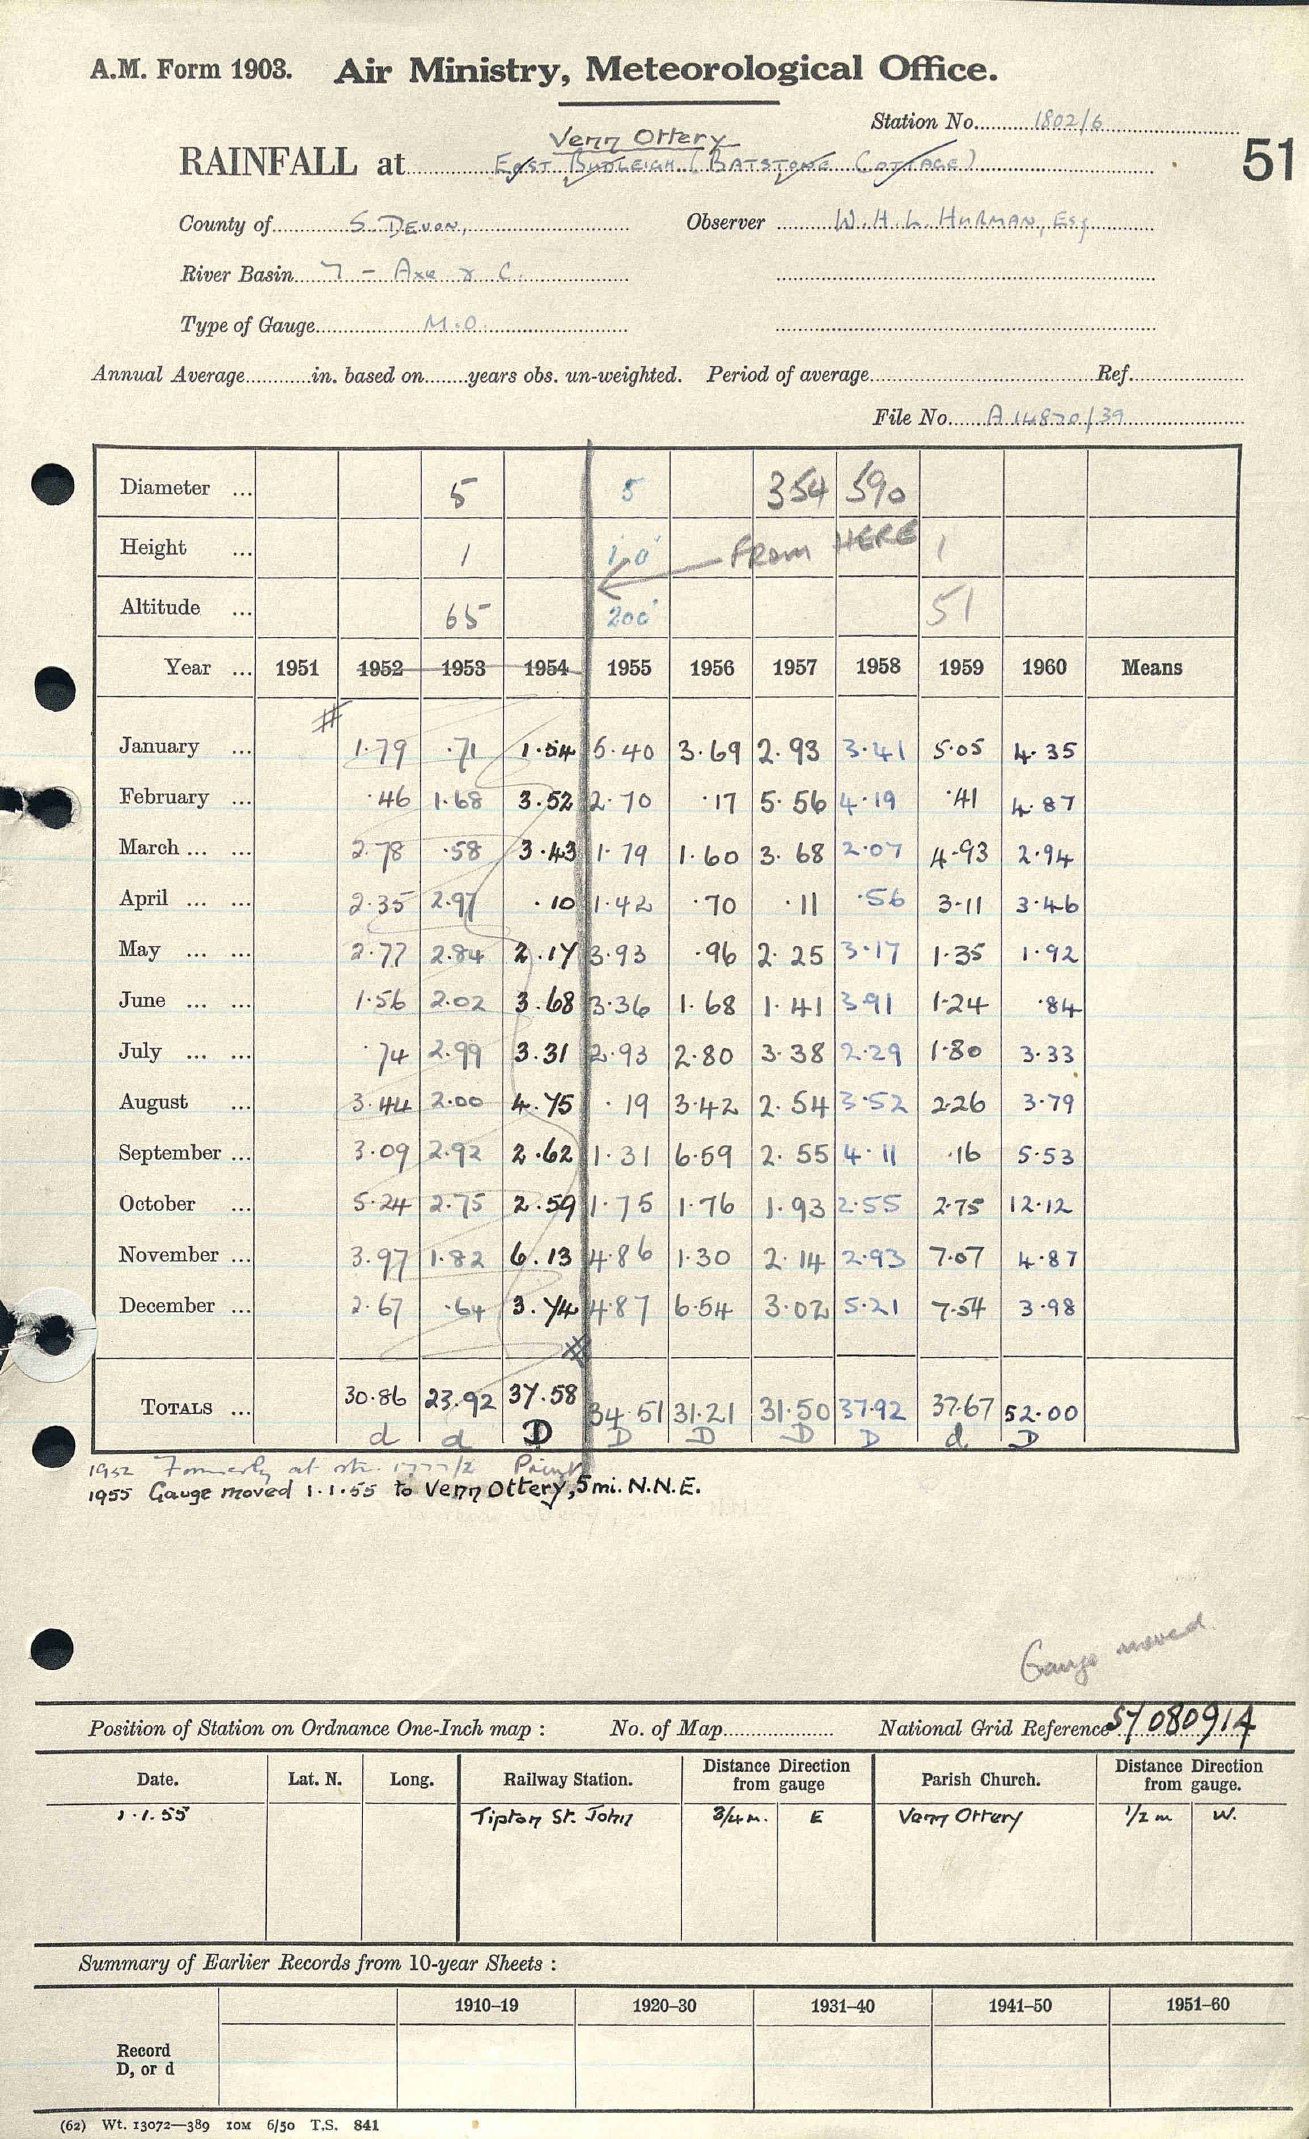 A.M. Form 1903. Air Ministry, Meteorological Office.
Station No. 1802/6
Venn Ottery
RAINFALL at East Budleigh (Batstone Cottage) 51
County of S. Devon, Observer W.H.L. Hurman, Esq
River Basin 7 - Axe & C.
Type of Gauge M.O.
Annual Average in. based on years obs. un-weighted. Period of average Ref.
File No. A14870/39
Diameter ... 5 5 354 590
Height ... 1 1.0' ← FROM HERE 1
Altitude ... 65 200' 51
Year ... 1951 1952 1953 1954 1955 1956 1957 1958 1959 1960 Means
#
January ... 1.79 .71 1.54 5.40 3.69 2.93 3.41 5.05 4.35
February ... .46 1.68 3.52 2.70 .17 5.56 4.19 .41 4.87
March ... ... 2.78 .58 3.43 1.79 1.60 3.68 2.07 4.93 2.94
April ... ... 2.35 2.97 .10 1.42 .70 .11 .56 3.11 3.46
May ... ... 2.77 2.84 2.17 3.93 .96 2.25 3.17 1.35 1.92
June ... ... 1.56 2.02 3.68 3.36 1.68 1.41 3.91 1.24 .84
July ... ... .74 2.99 3.31 2.93 2.80 3.38 2.29 1.80 3.33
August ... 3.44 2.00 4.75 .19 3.42 2.54 3.52 2.26 3.79
September ... 3.09 2.92 2.62 1.31 6.59 2.55 4.11 .16 5.53
October ... 5.24 2.75 2.59 1.75 1.76 1.93 2.55 2.75 12.12
November ... 3.97 1.82 6.13 4.86 1.30 2.14 2.93 7.07 4.87
December ... 2.67 .64 3.74 4.87 6.54 3.02 5.21 7.54 3.98
#
TOTALS ... 30.86 23.92 37.58 34.51 31.21 31.50 37.92 37.67 52.00
d d D D D D D d D
1952 Formerly at stn. 1777/2
1955 Gauge moved 1.1.55 to Venn Ottery, 5mi. N.N.E.
Gauge moved
Position of Station on Ordnance One-Inch map : No. of Map National Grid Reference SY 080914
Date. Lat. N. Long. Railway Station. Distance Direction from gauge Parish Church. Distance Direction from gauge.
1.1.55 Tipton St. John 3/4m. E Venn Ottery 1/2 m W.
Summary of Earlier Records from 10-year Sheets :
1910–19 1920–30 1931–40 1941–50 1951–60
Record
D, or d
(62) Wt. 13072—389 10M 6/50 T.S. 841